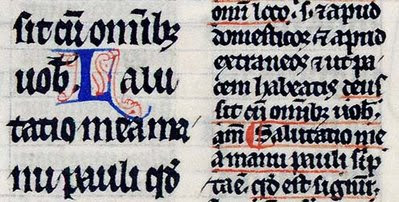 sit cū om̄ibꝫ
uob̄. Salu
tatio mea ma
nu pauli qd̄
om̄i loco. s; ⁊ apud
domesticos ⁊ apud
extraneos ⁊ ut pa
cem habeatis deus
sit cū om̄ibꝫ uob̄.
am̄ Salutatio me
a manu pauli
qd̄ est signū.